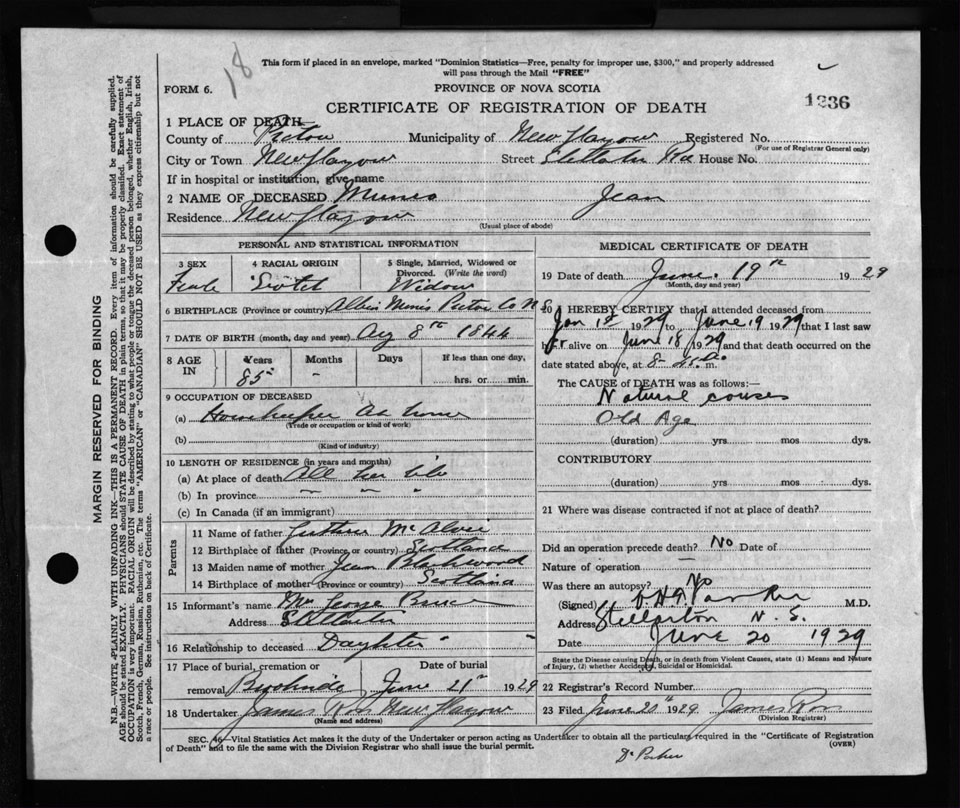 18
This form if placed in an envelope, marked "Dominion Statistics—Free, penalty for improper use, $300," and properly addressed
will pass through the Mail "FREE"
FORM 6.
PROVINCE OF NOVA SCOTIA
CERTIFICATE OF REGISTRATION OF DEATH
1236
1 PLACE OF DEATH
County of Pictou Municipality of New Glasgow Registered No.
(For use of Registrar General only)
City or Town New Glasgow Street Stellarton Rd House No.
If in hospital or institution, give name
2 NAME OF DECEASED Munro Jean
Residence New Glasgow
(Usual place of abode)
PERSONAL AND STATISTICAL INFORMATION
3 SEX 4 RACIAL ORIGIN 5 Single, Married, Widowed or
Divorced. (Write the word)
Female Scotch Widow
6 BIRTHPLACE (Province or country) Albion Mines Pictou Co N.S.
7 DATE OF BIRTH (month, day and year) Aug 8th 1844
8 AGE IN Years Months Days If less than one day,
85 - hrs. or min.
9 OCCUPATION OF DECEASED
(a) Housekeeper At home
(Trade or occupation or kind of work)
(b)
(Kind of industry)
10 LENGTH OF RESIDENCE (in years and months)
(a) At place of death All her life
(b) In province " " "
(c) In Canada (if an immigrant)
Parents
11 Name of father
12 Birthplace of father (Province, or country) Scotland
13 Maiden name of mother Jean
14 Birthplace of mother (Province or country) Scotland
15 Informant's name Mrs George
Address Stellarton
16 Relationship to deceased Daughter
17 Place of burial, cremation or Date of burial
removal June 21st 1929
18 Undertaker James Ross New Glasgow
(Name and address)
MEDICAL CERTIFICATE OF DEATH
19 Date of death June 19th 1929
(Month, day and year)
20 I HEREBY CERTIFY that I attended deceased from
Jan 1st 1929 to June 19 1929 that I last saw
her alive on June 18 1929 and that death occurred on the
date stated above, at 8 m.
The CAUSE of DEATH was as follows:—
Natural causes
Old Age
(duration) yrs mos dys.
CONTRIBUTORY
(duration) yrs mos dys.
21 Where was disease contracted if not at place of death?
Did an operation precede death? No Date of
Nature of operation —
Was there an autopsy? No
(Signed) Parker M.D.
Address Stellarton N. S.
Date June 20 1929
State the Disease causing Death, or in death from Violent Causes, state (1) Means and Nature
of Injury, (2) whether Accidental, Suicidal or Homicidal.
22 Registrar's Record Number
23 Filed June 20 1929 James Ross
(Division Registrar)
SEC. 46—Vital Statistics Act makes it the duty of the Undertaker or person acting as Undertaker to obtain all the particulars required in the "Certificate of Registration
of Death" and to file the same with the Division Registrar who shall issue the burial permit. (OVER)
Dr Parker
MARGIN RESERVED FOR BINDING
N.B.—WRITE PLAINLY WITH UNFADING INK—THIS IS A PERMANENT RECORD. Every item of information should be carefully supplied.
AGE should be stated EXACTLY. PHYSICIANS should STATE CAUSE OF DEATH in plain terms, so that it may be properly classified. Exact statement of
OCCUPATION is very important. RACIAL ORIGIN will be described by stating to what people or tongue the deceased person belonged, whether English, Irish,
Scotch, French, German, Russian, Ruthenian, etc. The terms "AMERICAN" or "CANADIAN" SHOULD NOT BE USED as they express citizenship but not
a race or people. See instructions on back of Certificate.